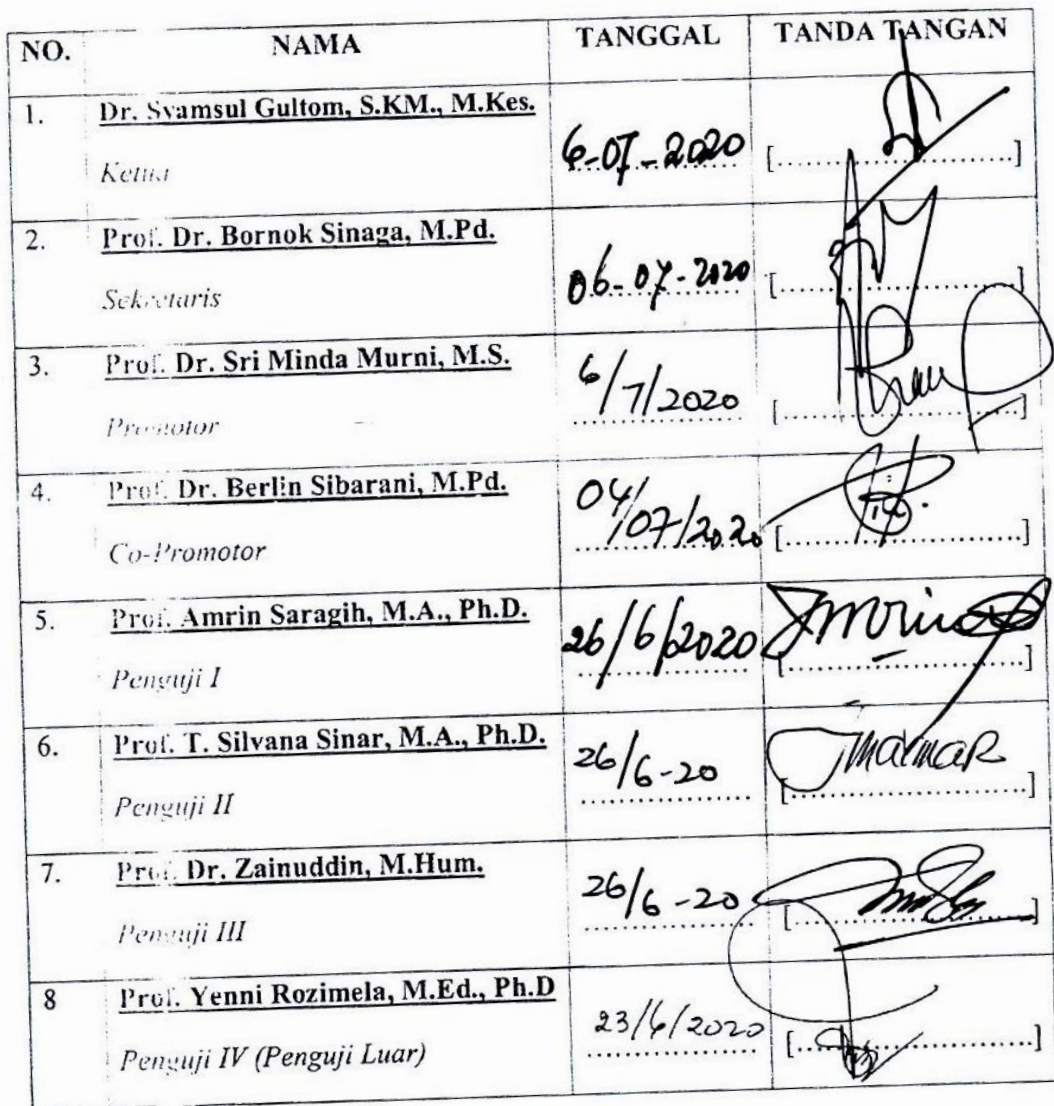 NO. NAMA TANGGAL TANDA TANGAN
1. Dr. Syamsul Gultom, S.KM., M.Kes.
Ketua
6-07-2020 [........................]
2. Prof. Dr. Bornok Sinaga, M.Pd.
Sekretaris
06-07-2020 [........................]
3. Prof. Dr. Sri Minda Murni, M.S.
Promotor
6/7/2020 [........................]
4. Prof. Dr. Berlin Sibarani, M.Pd.
Co-Promotor
04/07/2020 [........................]
5. Prof. Amrin Saragih, M.A., Ph.D.
Penguji I
26/6/2020 [........................]
6. Prof. T. Silvana Sinar, M.A., Ph.D.
Penguji II
26/6-20 [........................]
7. Prof. Dr. Zainuddin, M.Hum.
Penguji III
26/6-20 [........................]
8 Prof. Yenni Rozimela, M.Ed., Ph.D
Penguji IV (Penguji Luar)
23/6/2020 [........................]